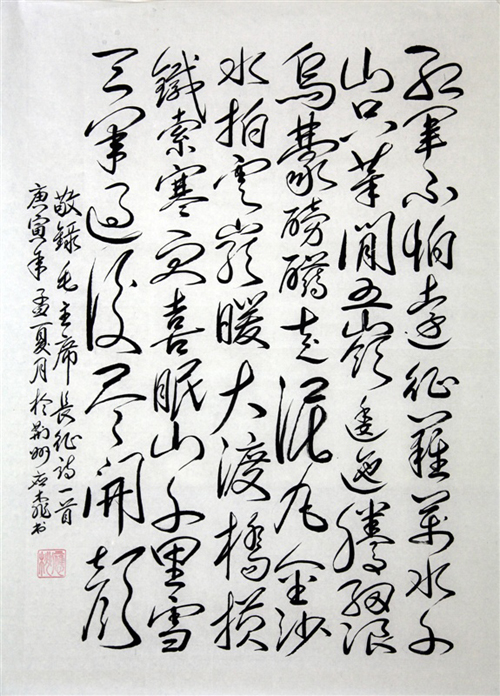 红軍不怕遠征難萬水千
山只等閒五嶺逶迤騰細浪
烏蒙磅礴走泥丸金沙
水拍雲崖暖大渡橋横
鐵索寒更喜岷山千里雪
三軍過後尽開顔
敬錄毛主席長征詩一首
庚寅年孟夏月於荆州书